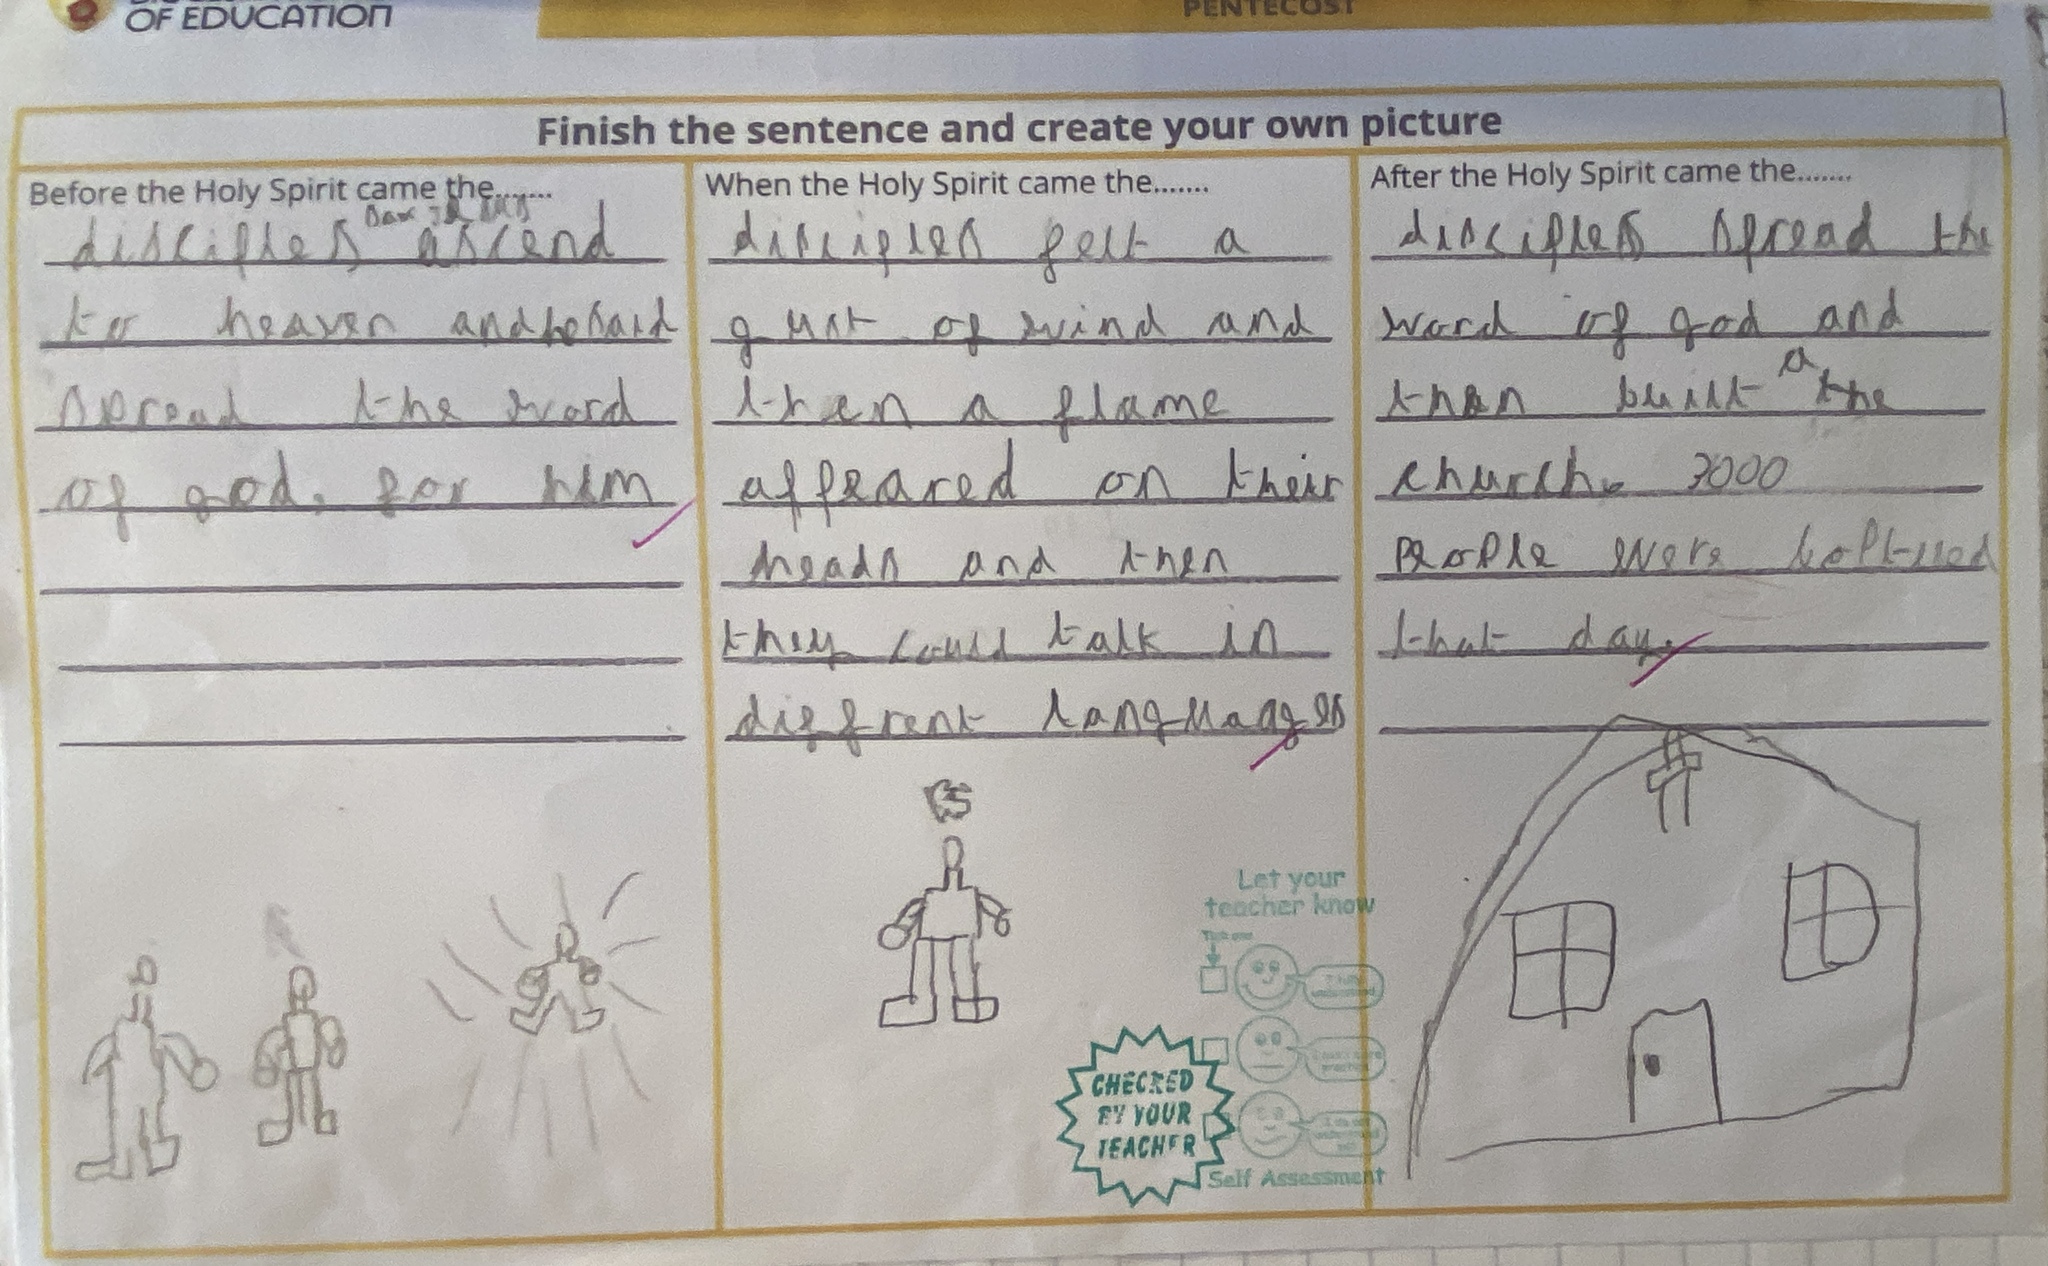 OF EDUCATION
PENTECOST
Finish the sentence and create your own picture
Before the Holy Spirit came the.......
disciples saw Jesus ascend
to heaven and he said
spread the word
of god. for him
When the Holy Spirit came the.......
disciples felt a
gust of wind and
then a flame
appeared on their
heads and then
they could talk in
diffrent languages
After the Holy Spirit came the.......
disciples spread the
word of god and
then built a the
church. 3000
people were baptused
that day.
Let your
teacher know
Tick one
CHECKED
BY YOUR
TEACHER
Self Assessment